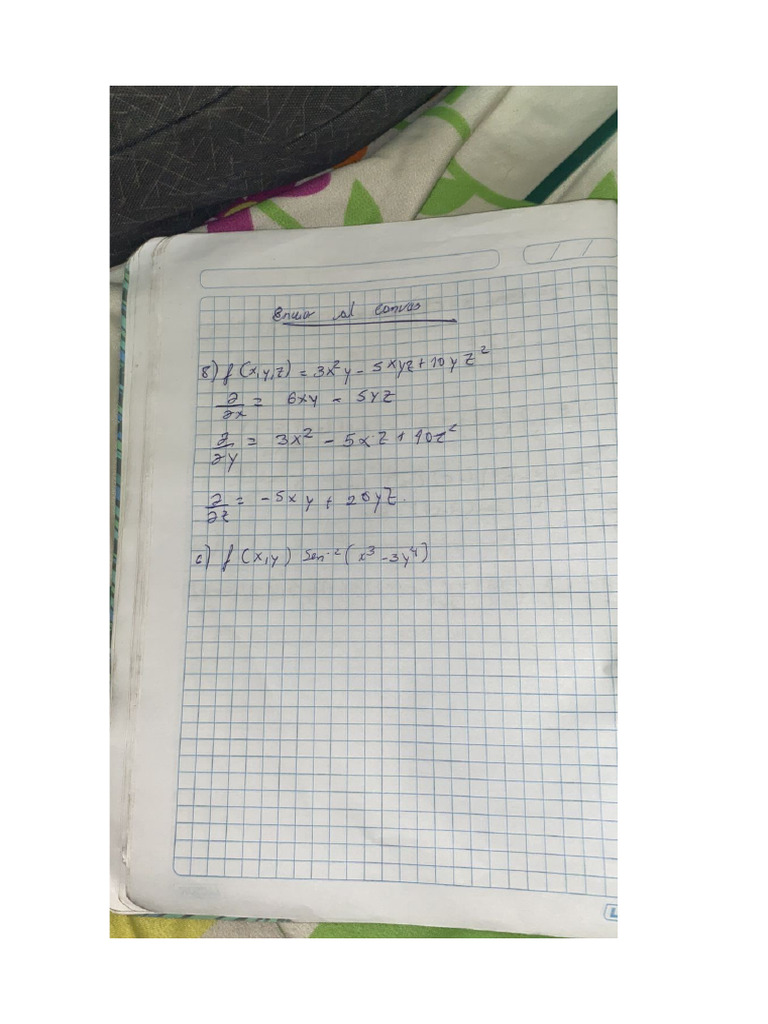 Enviar al canvas
B) f(x,y,z) = 3x²y - 5xyz + 10yz²
∂/∂x = 6xy - 5yz
∂/∂y = 3x² - 5xz + 10z²
∂/∂z = -5xy + 20yz.
c) f(x,y) Sen⁻²(x³ - 3y⁴)